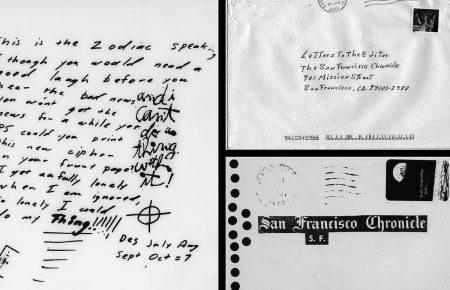 This is the Zodiac speaking
I though you would need a
good laugh before you
hear the bad news
you won't get the
news for a while yet
PS could you print
this new cipher
on your frunt page?
I get awfully lonely
when I am ignored,
so lonely I could
do my Thing!!!!!!
and i
can't
do a
thing
with
it!
Des July Aug
Sept Oct = 7
Letters To The Editor
The San Francisco Chronicle
901 Mission Street
San Francisco, CA. 94103-2988
94103+2988
San Francisco Chronicle
S. F.